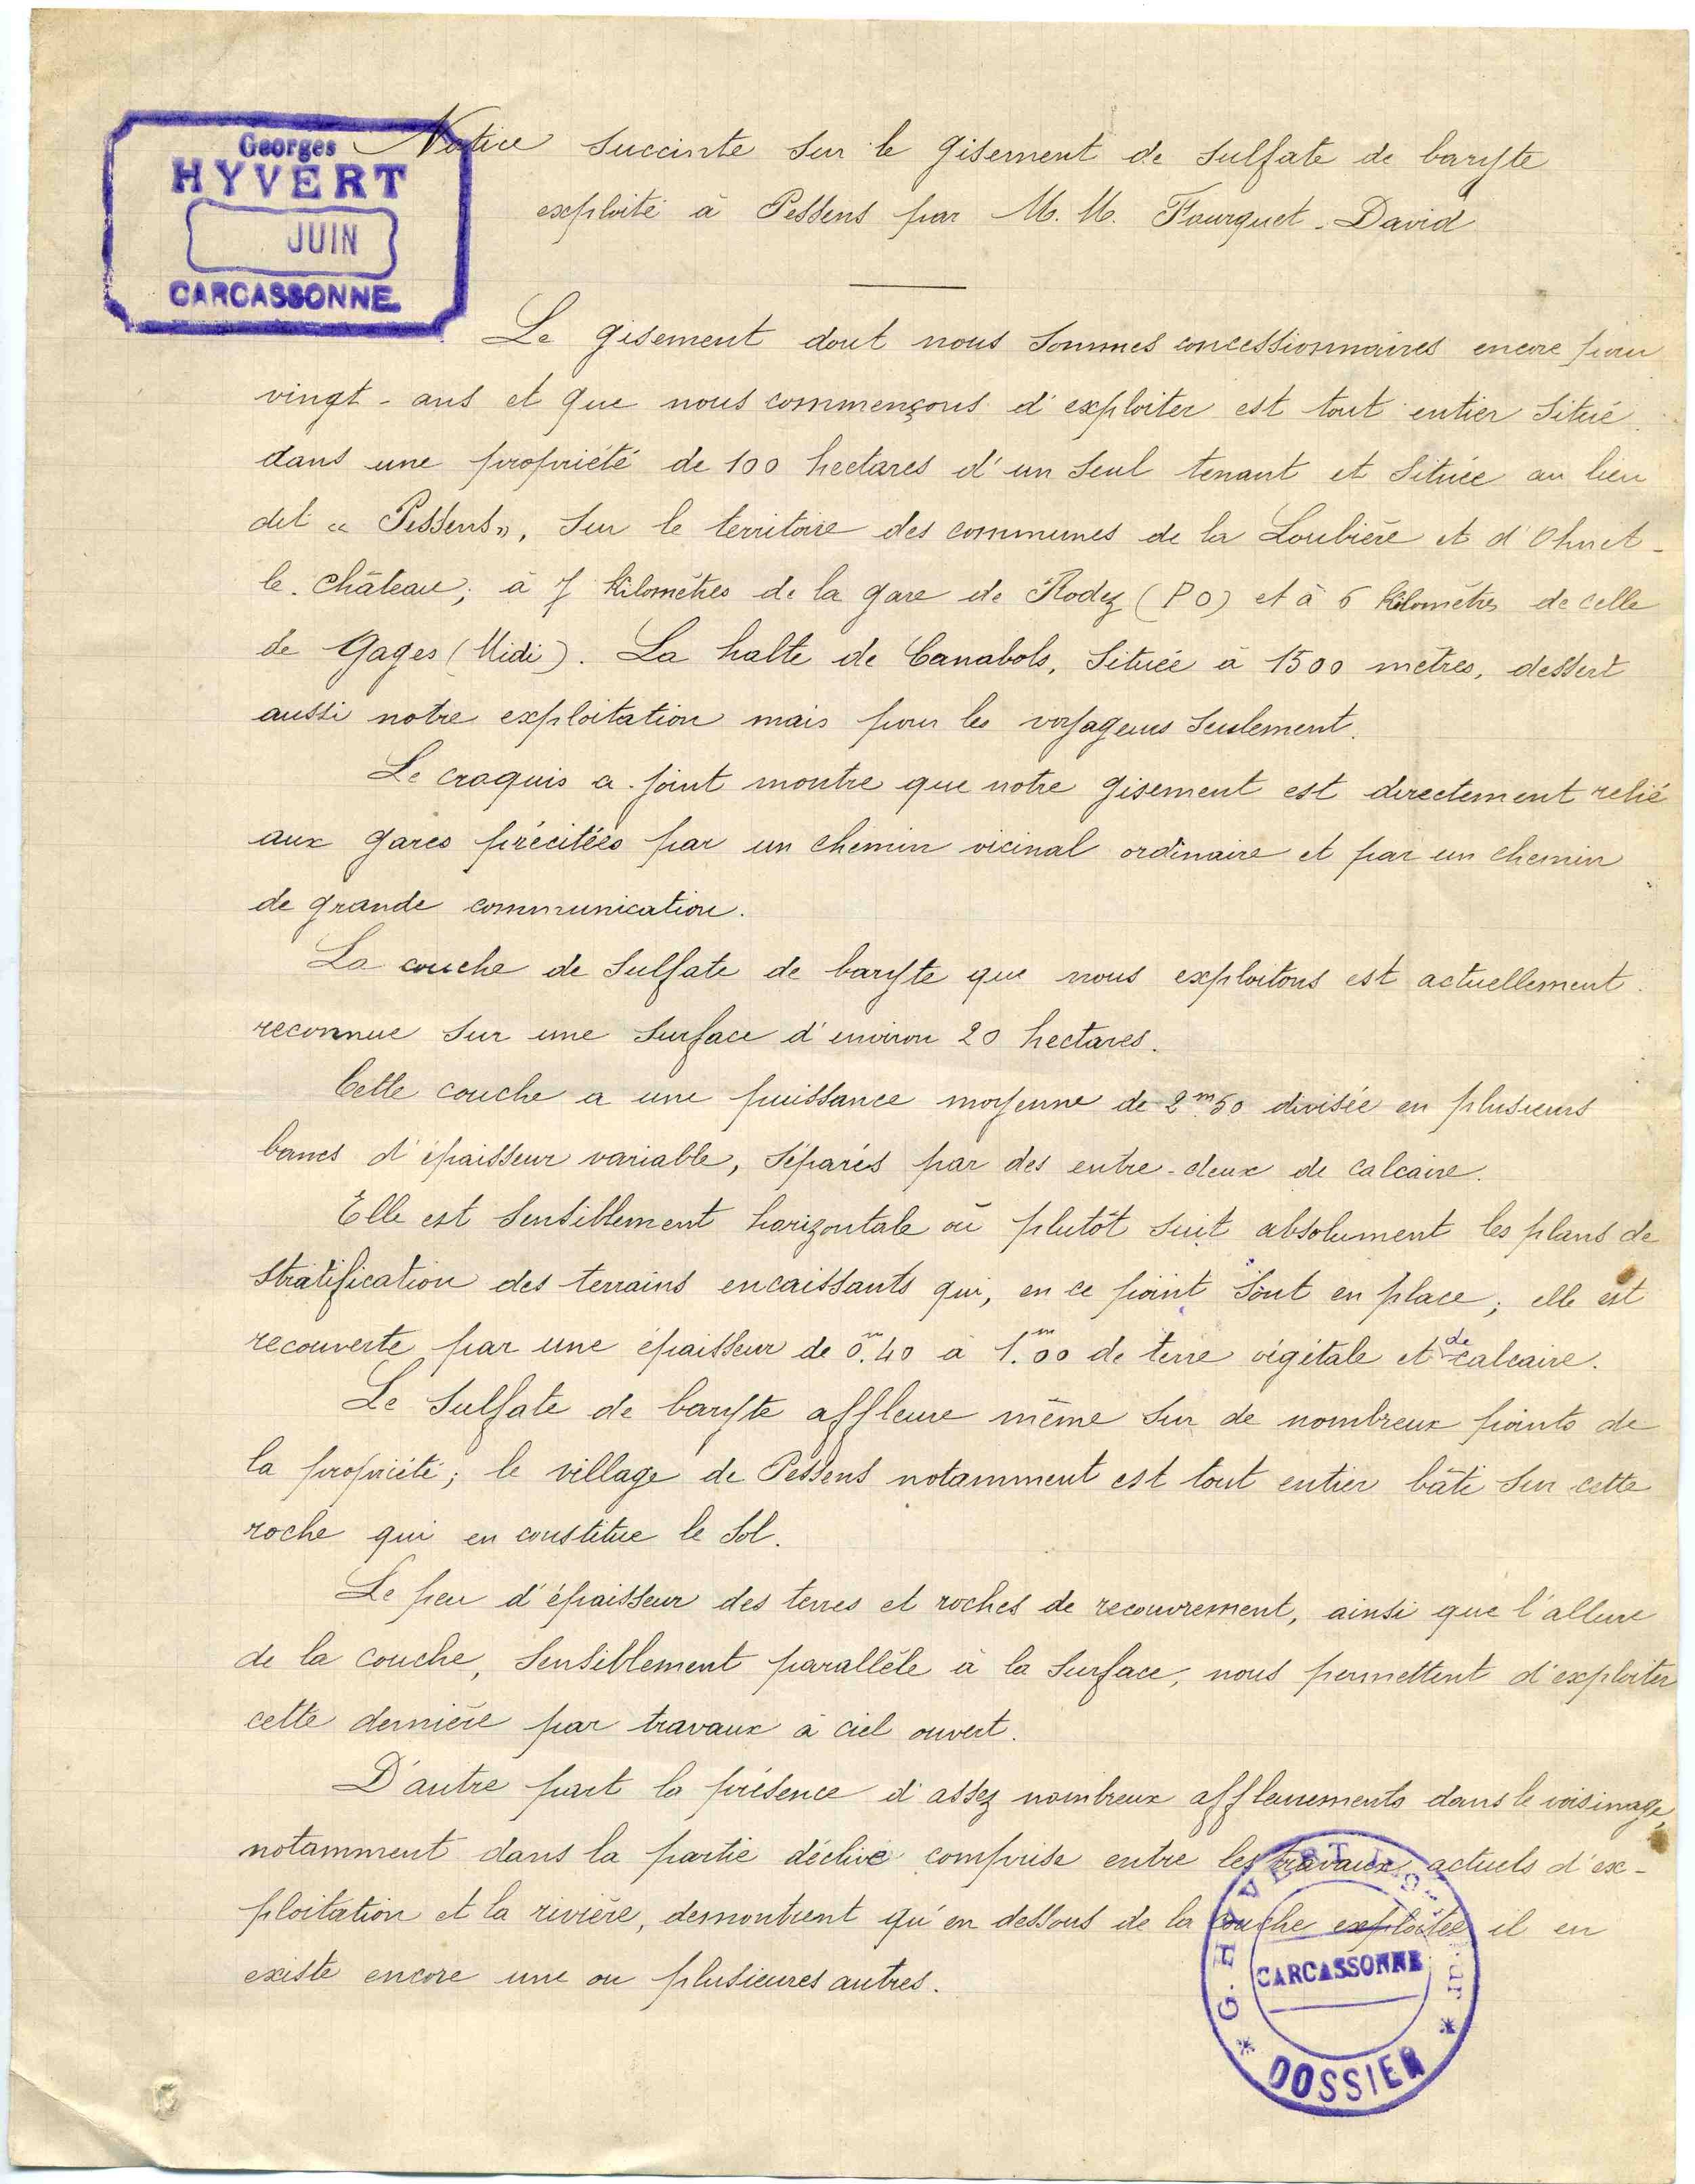 Georges
HYVERT
JUIN
CARCASSONNE
Notice succinte sur le gisement de sulfate de baryte
exploité à Pessens par M. M. Fourquet-David
Le gisement dont nous sommes concessionnaires encore pour
vingt-ans et que nous commençons d'exploiter est tout entier situé
dans une propriété de 100 hectares d'un seul tenant et située au lieu
dit « Pessens », sur le territoire des communes de la Loubière et d'Ohnet-
le-Château; à 7 kilomètres de la gare de Rodez (PO) et à 6 kilomètres de celle
de Gages (Midi). La halte de Canabols, située à 1500 mètres, dessert
aussi notre exploitation mais pour les voyageurs seulement.
Le croquis a-joint montre que notre gisement est directement relié
aux gares précitées par un chemin vicinal ordinaire et par un chemin
de grande communication.
La couche de sulfate de baryte que nous exploitons est actuellement
reconnue sur une surface d'environ 20 hectares.
Cette couche a une puissance moyenne de 2m.50 divisée en plusieurs
bancs d'épaisseur variable, séparés par des entre-deux de calcaire.
Elle est sensiblement horizontale où plutôt suit absolument les plans de
stratification des terrains encaissants qui, en ce point sont en place; elle est
recouverte par une épaisseur de 0m.40 à 1m.00 de terre végétale et de calcaire.
Le sulfate de baryte affleure même sur de nombreux points de
la propriété; le village de Pessens notamment est tout entier bâti sur cette
roche qui en constitue le sol.
Le peu d'épaisseur des terres et roches de recouvrement, ainsi que l'allure
de la couche, sensiblement parallèle à la surface, nous permettent d'exploiter
cette dernière par travaux à ciel ouvert.
D'autre part la présence d'assez nombreux affleurements dans le voisinage,
notamment dans la partie déclive comprise entre les travaux actuels d'ex-
ploitation et la rivière, demontrent qu'en dessous de la couche exploitée il en
existe encore une ou plusieures autres.
* G. HYVERT
CARCASSONNE
* DOSSIER